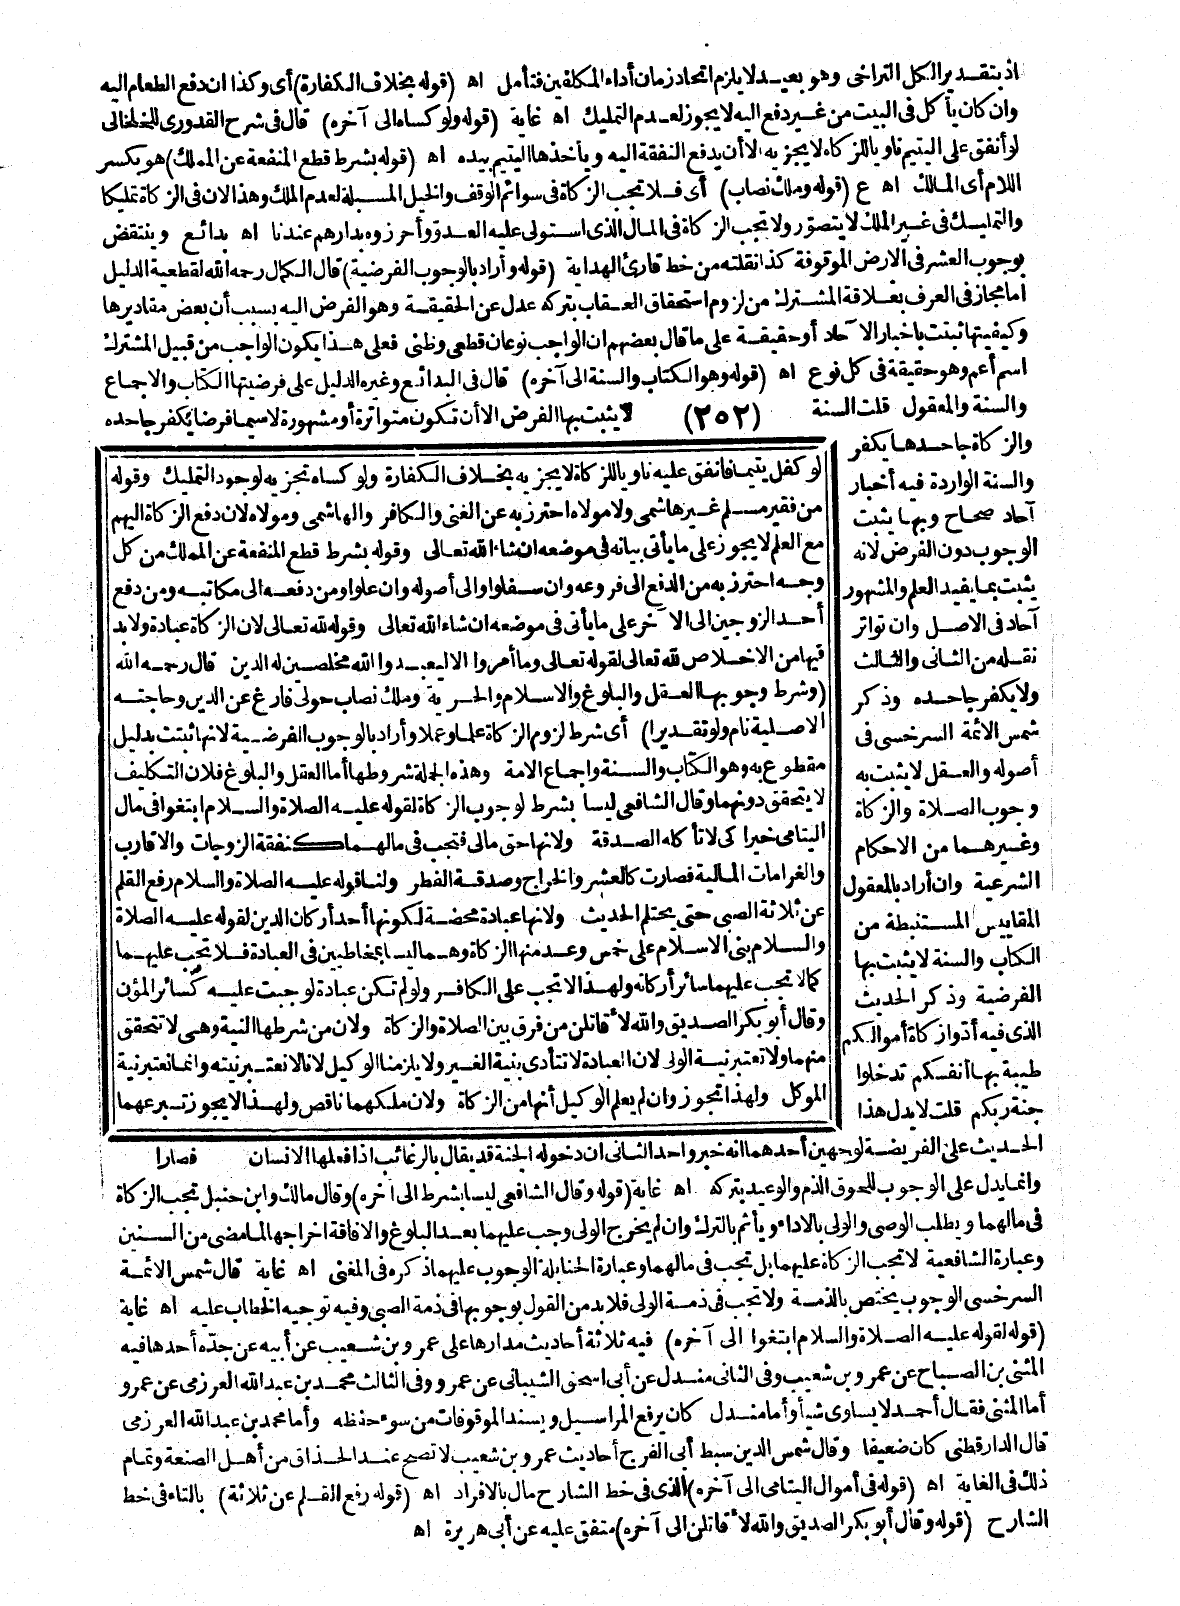 اذ بتقدير الكل التراخى وهو بعيد لا يلزم اتحاد زمان أداء المكلفين فتأمل اه (قوله بخلاف الكفارة) أى وكذا ان دفع الطعام اليه
وان كان يأكل فى البيت من غير دفع اليه لا يجوز لعدم التمليك اه غاية (قوله ولو كساه الى آخره) قال فى شرح القدورى للخلخالى
لو أنفق على اليتيم ناويا للزكاة لا يجزيه الا أن يدفع النفقة اليه ويأخذها اليتيم بيده اه (قوله بشرط قطع المنفعة عن المملك) هو بكسر
اللام أى المالك اه ع (قوله وملك نصاب) أى فلا تجب الزكاة فى سوائم الوقف والخيل المسبلة لعدم الملك وهذا لان فى الزكاة تمليكا
والتمليك فى غير الملك لا يتصوّر ولا تجب الزكاة فى المال الذى استولى عليه العدوّ وأحرزوه بدارهم عندنا اه بدائع وينتقض
بوجوب العشر فى الارض الموقوفة كذا نقلته من خط قارئ الهداية (قوله وأراد بالوجوب الفرضية) قال الكمال رحمه الله لقطعية الدليل
اما مجاز فى العرف بعلاقة المشترك من لزوم استحقاق العقاب بتركه عدل عن الحقيقة وهو الفرض اليه بسبب أن بعض مقاديرها
وكيفيتها ثبتت باخبار الآحاد أو حقيقة على ما قال بعضهم ان الواجب نوعان قطعى وظنى فعلى هذا يكون الواجب من قبيل المشترك
اسم أعم وهو حقيقة فى كل نوع اه (قوله وهو الكتاب والسنة الى آخره) قال فى البدائع وغيره الدليل على فرضيتها الكتاب والاجماع
والسنة والمعقول قلت السنة (٢٥٢) لا يثبت بها الفرض الا أن تكون متواترة أو مشهورة لا سيما فرضا يكفر جاحده
والزكاة جاحدها يكفر
والسنة الواردة فيه أخبار
آحاد صحاح وبها يثبت
الوجوب دون الفرض لانه
يثبت بما يفيد العلم والمشهور
آحاد فى الاصل وان تواتر
نقله من الثانى والثالث
ولا يكفر جاحده وذكر
شمس الائمة السرخسى فى
أصوله والعقل لا يثبت به
وجوب الصلاة والزكاة
وغيرهما من الاحكام
الشرعية وان أراد بالمعقول
المقاييس المستنبطة من
الكتاب والسنة لا يثبت بها
الفرضية وذكر الحديث
الذى فيه أدوا زكاة أموالكم
طيبة بها أنفسكم تدخلوا
جنة ربكم قلت لا يدل هذا
لو كفل يتيما فانفق عليه ناويا للزكاة لا يجزيه بخلاف الكفارة ولو كساه تجزيه لوجود التمليك وقوله
من فقير مسلم غير هاشمى ولا مولاه احترز به عن الغنى والكافر والهاشمى ومولاه لان دفع الزكاة اليهم
مع العلم لا يجوز على ما يأتى بيانه فى موضعه ان شاء الله تعالى وقوله بشرط قطع المنفعة عن المملك من كل
وجه احترز به من الدفع الى فروعه وان سفلوا والى أصوله وان علوا ومن دفعه الى مكاتبه ومن دفع
أحد الزوجين الى الآخر على ما يأتى فى موضعه ان شاء الله تعالى وقوله لله تعالى لان الزكاة عبادة ولا بد
فيها من الاخلاص لله تعالى لقوله تعالى وما أمروا الا ليعبدوا الله مخلصين له الدين قال رحمه الله
(وشرط وجوبها العقل والبلوغ والاسلام والحرية وملك نصاب حولى فارغ عن الدين وحاجته
الاصلية نام ولو تقديرا) أى شرط لزوم الزكاة علما وعملا وأراد بالوجوب الفرضية لانها ثبتت بدليل
مقطوع به وهو الكتاب والسنة واجماع الامة وهذه الجملة شروطها أما العقل والبلوغ فلان التكليف
لا يتحقق دونهما وقال الشافعى ليسا بشرط لوجوب الزكاة لقوله عليه الصلاة والسلام ابتغوا فى مال
اليتامى خيرا كى لا تأكله الصدقة ولانها حق مالى فتجب فى مالهما كنفقة الزوجات والاقارب
والغرامات المالية فصارت كالعشر والخراج وصدقة الفطر ولنا قوله عليه الصلاة والسلام رفع القلم
عن ثلاثة الصبى حتى يحتلم الحديث ولانها عبادة محضة لكونها أحد أركان الدين لقوله عليه الصلاة
والسلام بنى الاسلام على خمس وعد منها الزكاة وهما ليسا بمخاطبين فى العبادة فلا تجب عليهما
كما لا تجب عليهما سائر أركانه ولهذا لا تجب على الكافر ولو لم تكن عبادة لوجبت عليه كسائر المؤن
وقال أبو بكر الصديق والله لأقاتلن من فرق بين الصلاة والزكاة ولان من شرطها النية وهى لا تتحقق
منهما ولا تعتبر نية الولى لان العبادة لا تتأدى بنية الغير ولا يلزمنا الوكيل لانا لا نعتبر نيته وانما نعتبر نية
الموكل ولهذا تجوز وان لم يعلم الوكيل أنها من الزكاة ولان ملكهما ناقص ولهذا لا يجوز تبرعهما
فصارا
الحديث على الفريضة لوجهين أحدهما انه خبر واحد الثانى ان دخوله الجنة قد يقال بالرغائب اذا فعلها الانسان
وانما يدل على الوجوب للحوق الذم والوعيد بتركه اه غاية (قوله وقال الشافعى ليسا بشرط الى آخره) وقال مالك وابن حنبل تجب الزكاة
فى مالهما ويطلب الوصى والولى بالاداء ويأثم بالترك وان لم يخرج الولى وجب عليهما بعد البلوغ والافاقة اخراجها لما مضى من السنين
وعبارة الشافعية لا تجب الزكاة عليهما بل تجب فى مالهما وعبارة الحنابلة الوجوب عليهما ذكره فى المغنى اه غاية قال شمس الائمة
السرخسى الوجوب يختص بالذمة ولا تجب فى ذمة الولى فلا بد من القول بوجوبها فى ذمة الصبى وفيه توجيه الخطاب عليه اه غاية
(قوله لقوله عليه الصلاة والسلام ابتغوا الى آخره) فيه ثلاثة أحاديث مدارها على عمرو بن شعيب عن أبيه عن جدّه أحدها فيه
المثنى بن الصباح عن عمرو بن شعيب وفى الثانى مندل عن أبى اسحق الشيبانى عن عمرو وفى الثالث محمد بن عبد الله العرزمى عن عمرو
أما المثنى فقال أحمد لا يساوى شيأ وأما مندل كان يرفع المراسيل ويسند الموقوفات من سوء حفظه وأما محمد بن عبد الله العرزمى
قال الدارقطنى كان ضعيفا وقال شمس الدين سبط أبى الفرج أحاديث عمرو بن شعيب لا تصح عند الحذاق من أهل الصنعة وتمام
ذلك فى الغاية اه (قوله فى أموال اليتامى الى آخره) الذى فى خط الشارح مال بالافراد اه (قوله رفع القلم عن ثلاثة) بالتاء فى خط
الشارح (قوله وقال أبو بكر الصديق والله لأقاتلن الى آخره) متفق عليه عن أبى هريرة اه